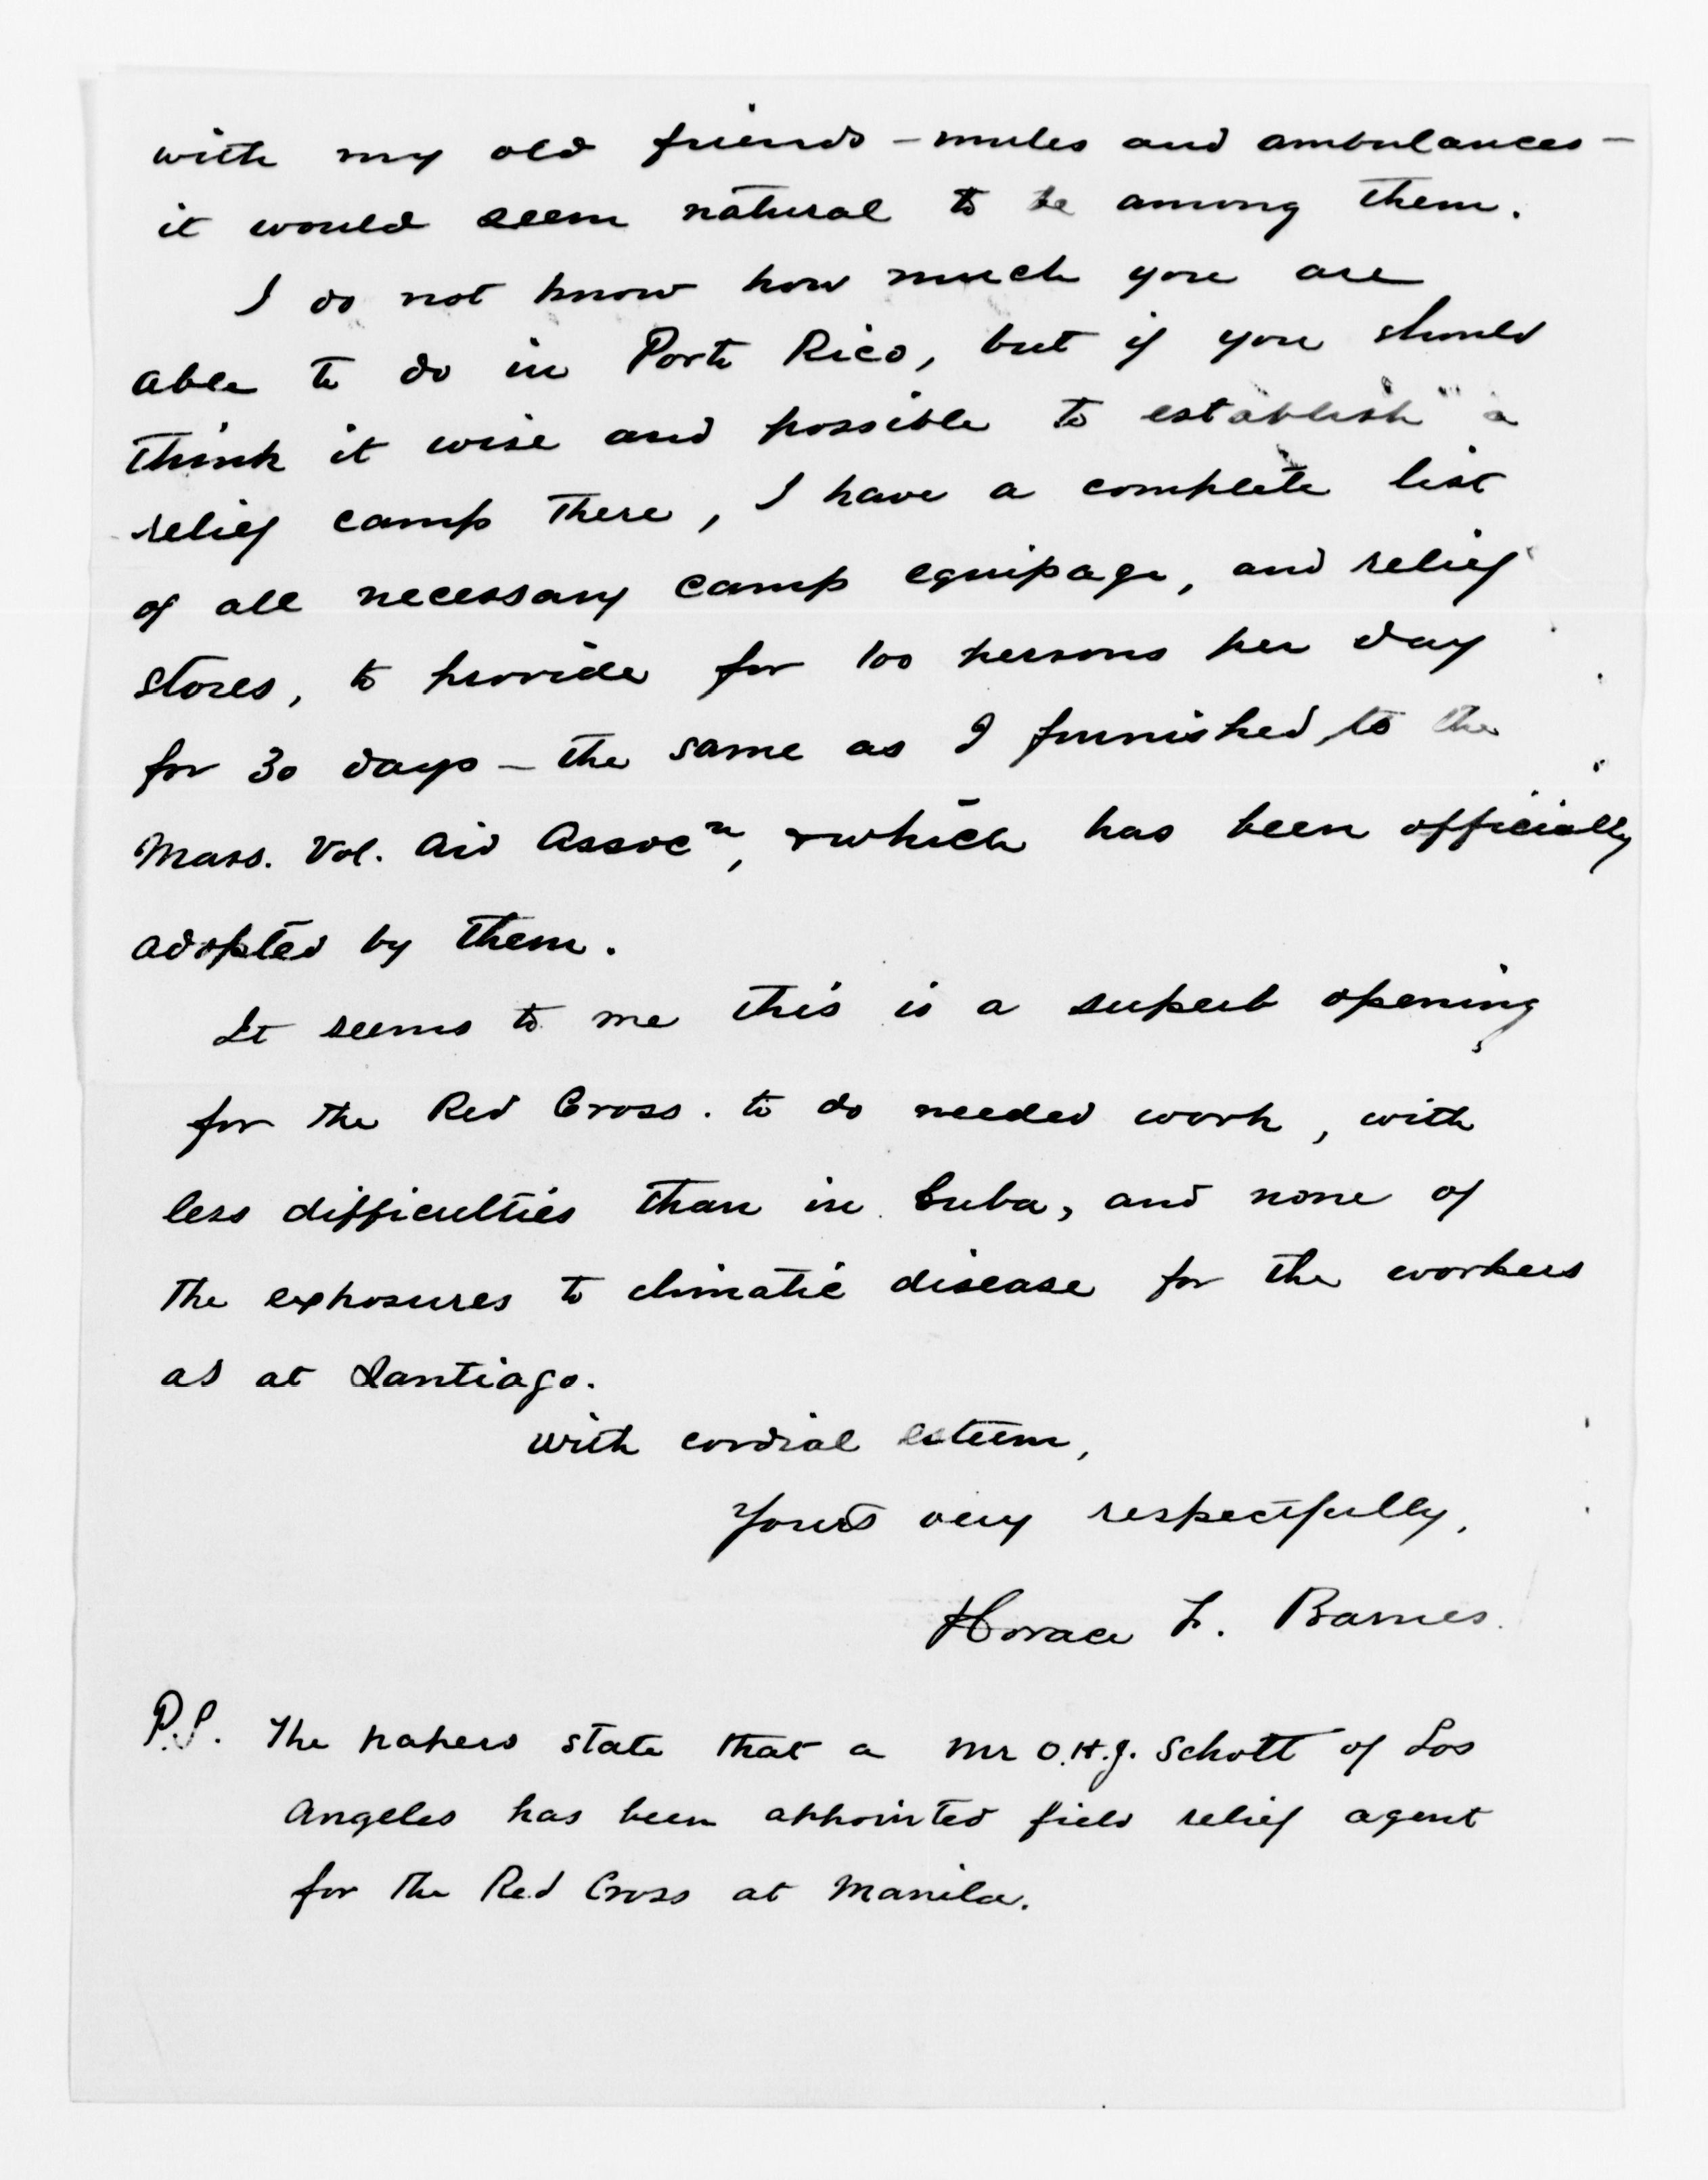 with my old friends – mules and ambulances –
it would seem natural to be among them.
I do not know how much you are
able to do in Porto Rico, but if you should
think it wise and possible to establish a
relief camp there, I have a complete list
of all necessary camp equipage, and relief
stores, to provide for 100 persons per day
for 30 days – the same as I furnished to the
Mass. Vol. Aid Assocn, & which has been officially
adopted by them.
It seems to me this is a superb opening
for the Red Cross. to do needed work, with
less difficulties than in Cuba, and none of
the exposures to climatic disease for the workers
as at Santiago.
With cordial esteem,
Yours very respectfully,
Horace F. Barnes.
P.S. The papers state that a Mr O.H.J. Schott of Los
Angeles has been appointed field relief agent
for the Red Cross at Manila.